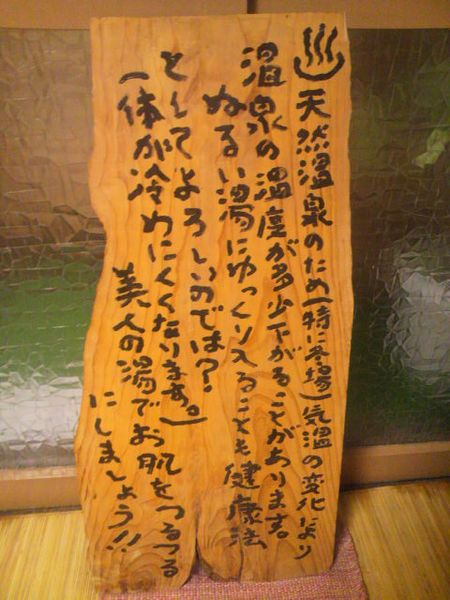 ♨天然温泉のため(特に冬場)気温の変化により
温泉の温度が多少下がることがあります。
ぬるい湯にゆっくり入ることも健康法
としてよろしいのでは?
(体が冷めにくくなります。)
美人の湯でお肌をつるつる
にしましょう!!